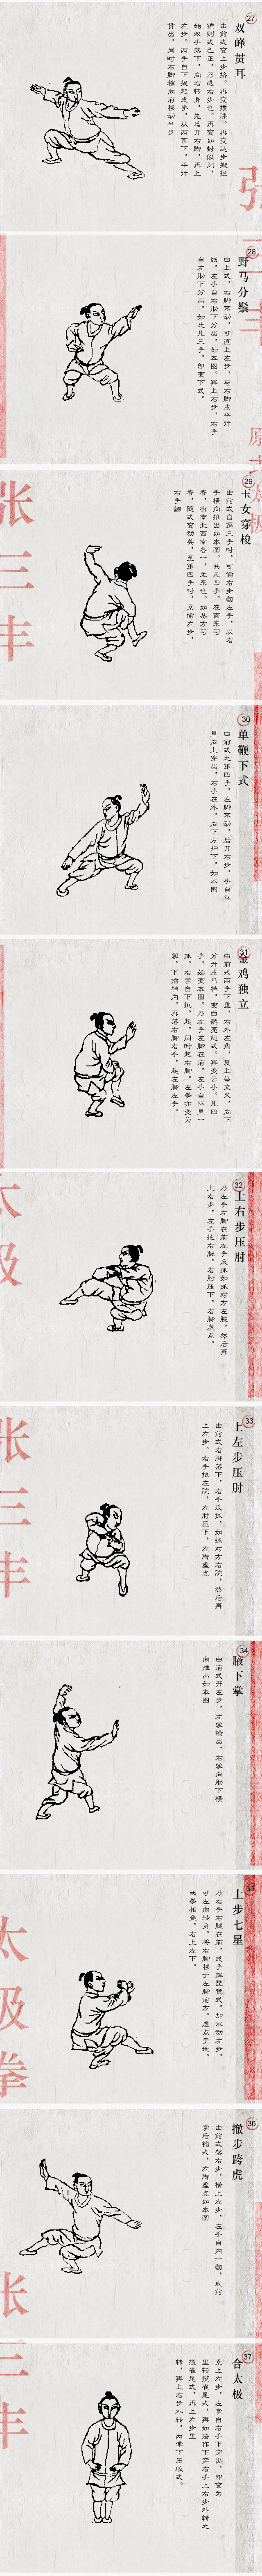 27
双峰贯耳
由前式变上步挤。再变搂膝。再变退步搬拦
锤则式已正。乃退右步也。再变如封似闭，
始双手落下，向右转身，先虽开右脚，再上
左步。两手自下提起成拳，从两耳下，平行
贯出，同时右脚横向前移动半步
28
野马分鬃
由上式，右脚不动，可直上左步，与右脚成平行
线，左手自右肋下分出，如本图。再上右步，右手
自左肋下分出，如此凡三手，即变下式。
29
玉女穿梭
由前式自第三手时，可偷右步翻左手，以右
手横向推出如本图。共凡四手。在面东习
者，有南北西南各一，无东也。如易方习
者，随式变动矣，至第四手时，系偷左步，
右手翻
30
单鞭下式
由前式之第四手，左脚不动，后开右步，手自怀
里向上穿出，右手在外，向下方扫下，如本图
31
金鸡独立
由前式两手下垂，右外左内，复上举交叉，向下
分开成马裆，变白鹤亮翅式。再变云手。凡四
手，始变本图。乃左手左脚在前，左手自怀里一
抓，右掌自下抵，起，同时起右脚。左拳亦变为
掌，下插裆内。再落右脚右手，起左脚左手。
32
上右步压肘
乃左手左脚在前左手反抓如抓对方左腕，然后再
上右步，左手抱右腕，右肘压下，右脚虚点。
33
上左步压肘
由前式右脚落下，右手反抓，如抓对方右腕，然后再
上左步。右手抱左腕，左肘压下，左脚虚点
34
腋下掌
由前式开左步，左掌横出，右掌向肋下横
向推出如本图
35
上步七星
乃右手右腿在前，成手挥琵琶式，却不动左步，
可左向转身，将右脚移于左脚前方，虚点于地，
两拳相叠，右上左下。
36
撤步跨虎
由前式落右步，横上左步，左手自内一翻，成前
掌后钩式，左脚虚点如本图
37
合太极
系上左步，左掌自右手下穿出，即变为
里转揽雀尾式，再如法作下穿右手上右步外转之
揽雀尾式，再上左步里
转，再上右步外转，两掌下压收式。
张三丰
太极
张三丰
太极拳
张三丰